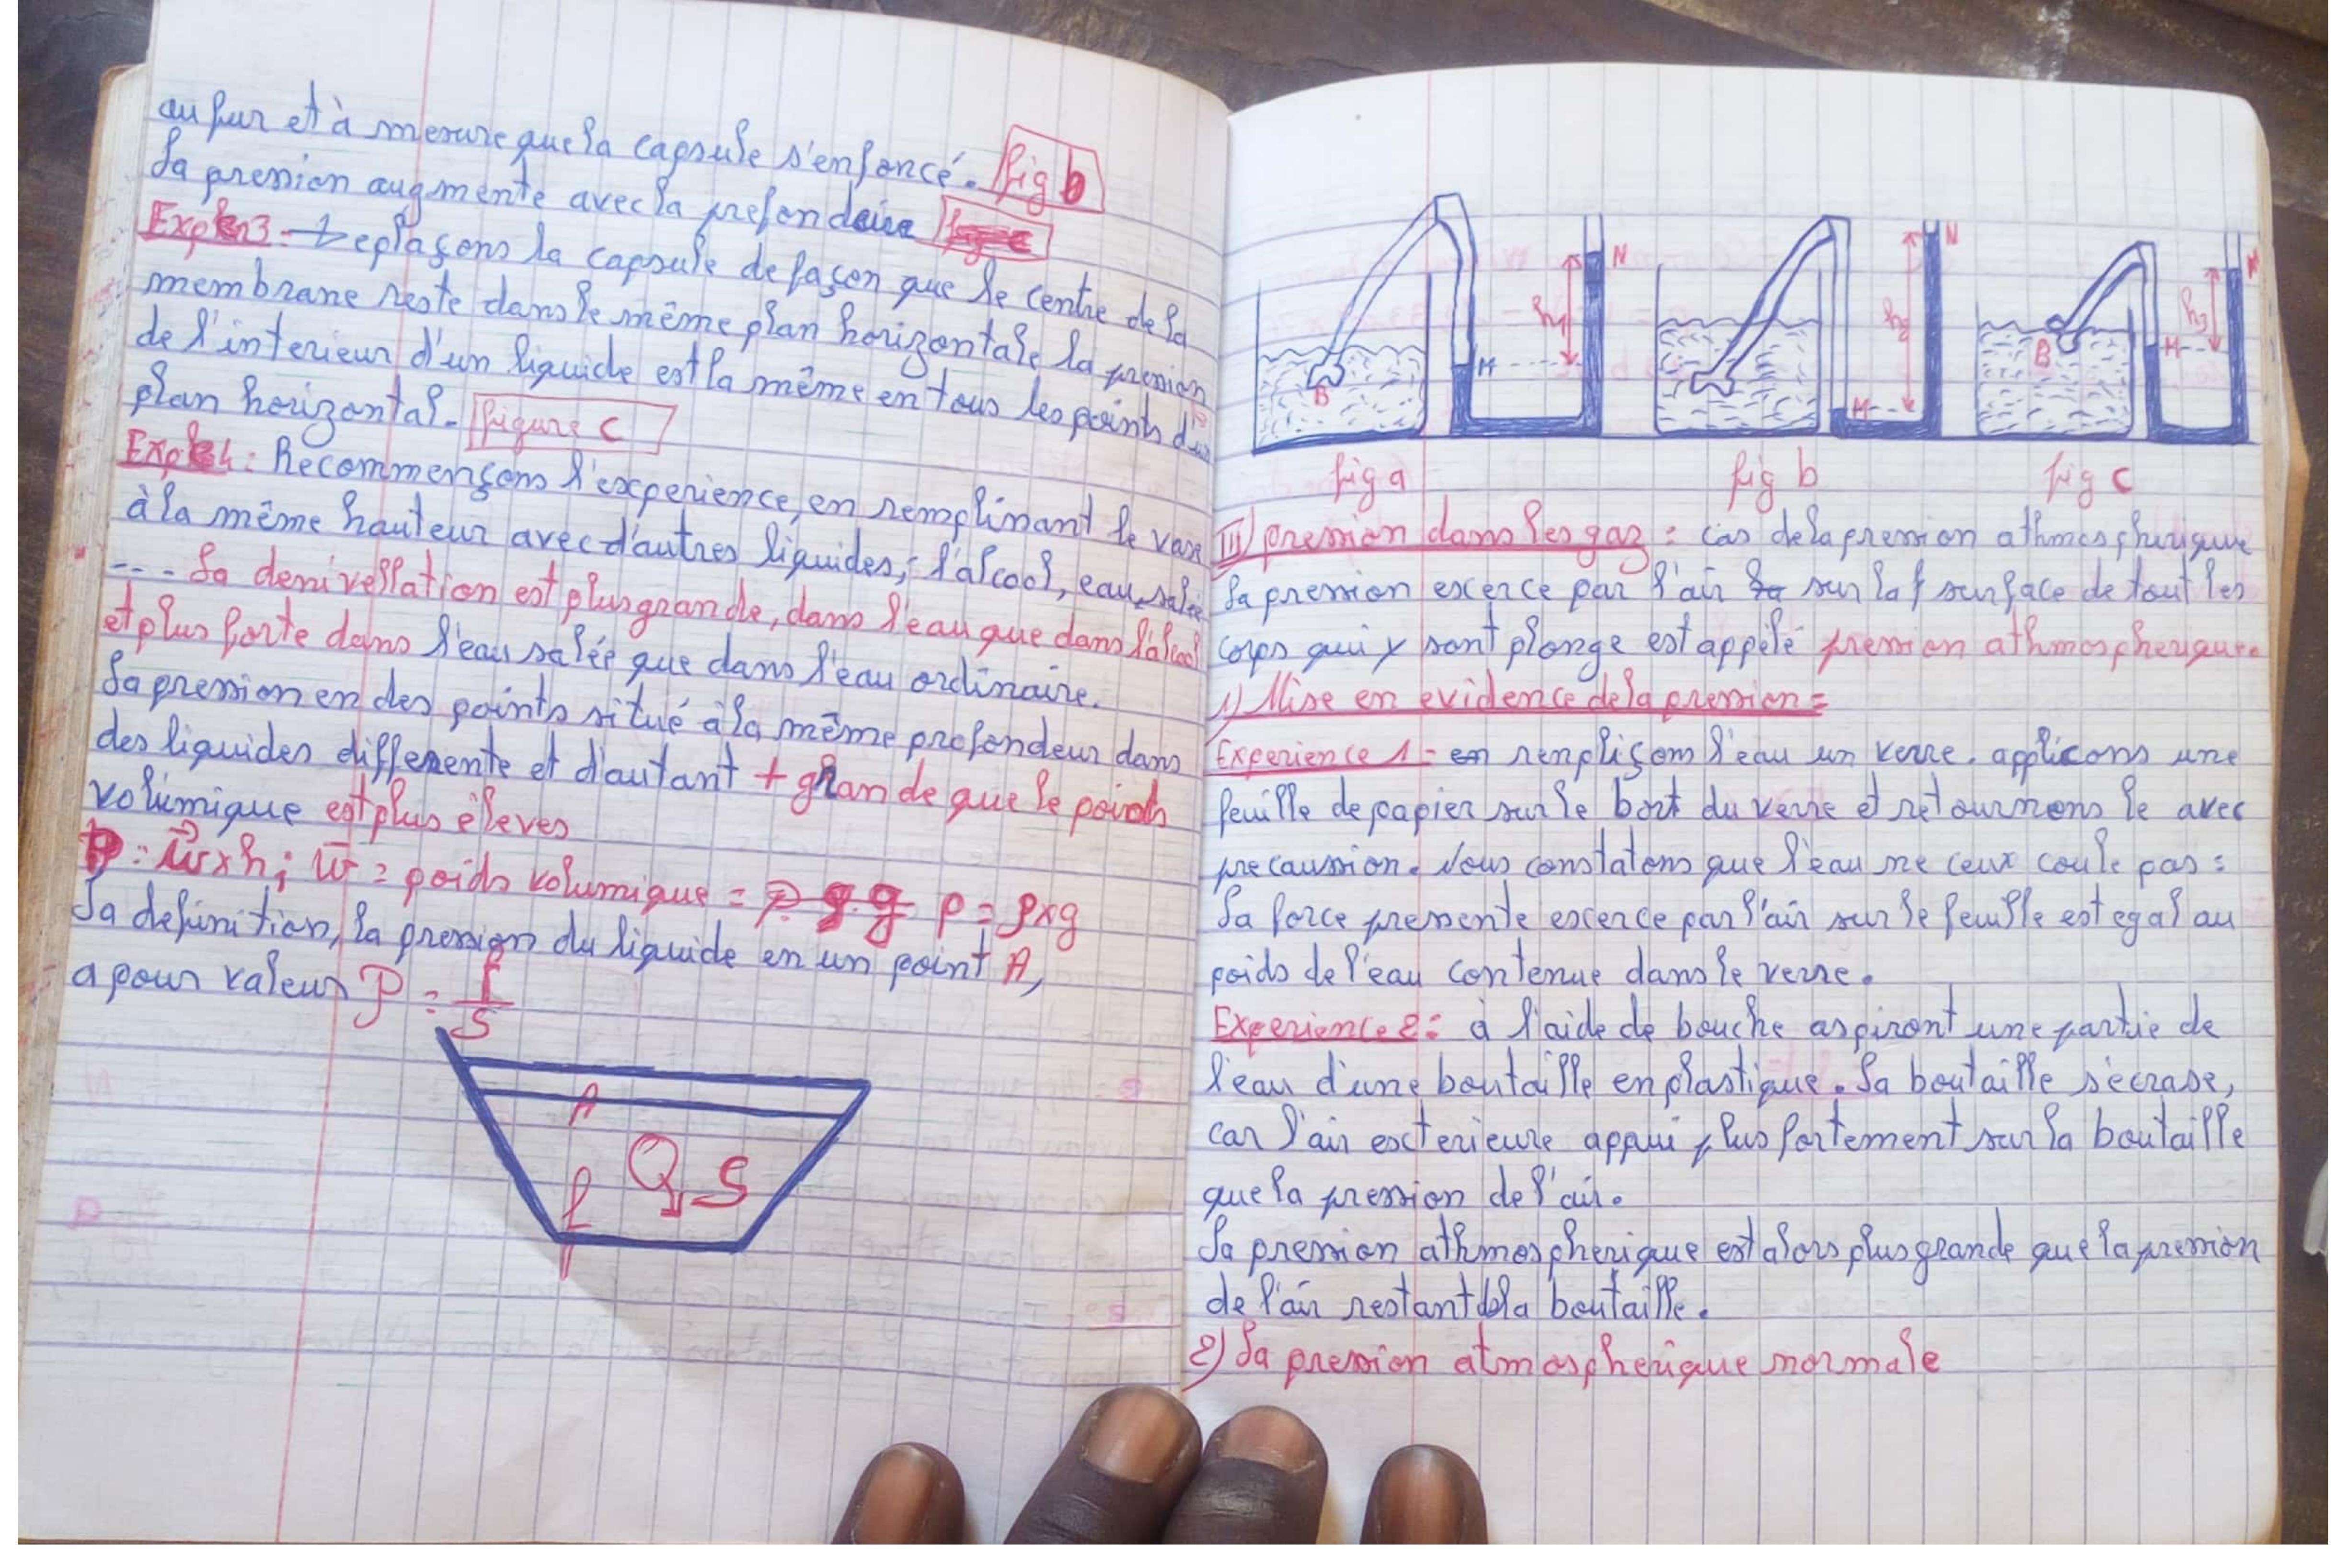 au fur et à mesure que la capsule s'enfoncé. fig b
La pression augmente avec la prefondeur
Expér3: Deplaçons la capsule de façon que le centre de la
membrane reste dans le même plan horizontale la pression
de l'interieur d'un liquide est la même en tous les points d'un
plan horizontal. figure c
Expér4: Recommençons l'experience, en remplissant le vase
à la même hauteur avec d'autres liquides, l'alcool, eau salée
... La denivellation est plus grande, dans l'eau que dans l'alcool
et plus forte dans l'eau salée que dans l'eau ordinaire.
La pression en des points situé à la même profondeur dans
des liquides differente et d'autant + grande que le poids
volumique est plus élevés
P = w×h; w = poids volumique = ρ = ρ×g
La definition, la pression du liquide en un point A,
a pour valeur P = f/s
A
Q S
f
N
h1
M
B
fig a
N
h2
M
fig b
N
h3
M
B
fig c
III) pression dans les gaz : cas de la pression athmospherique
La pression excerce par l'air sur la surface de tout les
corps qui y sont plonge est appelé pression athmospherique.
1) Mise en evidence de la pression =
Experience 1 = en remplisons l'eau un verre. applicons une
feuille de papier sur le bort du verre et retournons le avec
precaussion. Nous constatons que l'eau ne ceux coule pas :
La force pressente excerce par l'air sur le feuille est egal au
poids de l'eau contenue dans le verre.
Experience 2: à l'aide de bouche aspiront une partie de
l'eau d'une boutaille en plastique. La boutaille s'ecrase,
car l'air exterieure appui plus fortement sur la boutaille
que la pression de l'air.
La pression athmospherique est alors plus grande que la pression
de l'air restant la boutaille.
2) La pression atmospherique normale